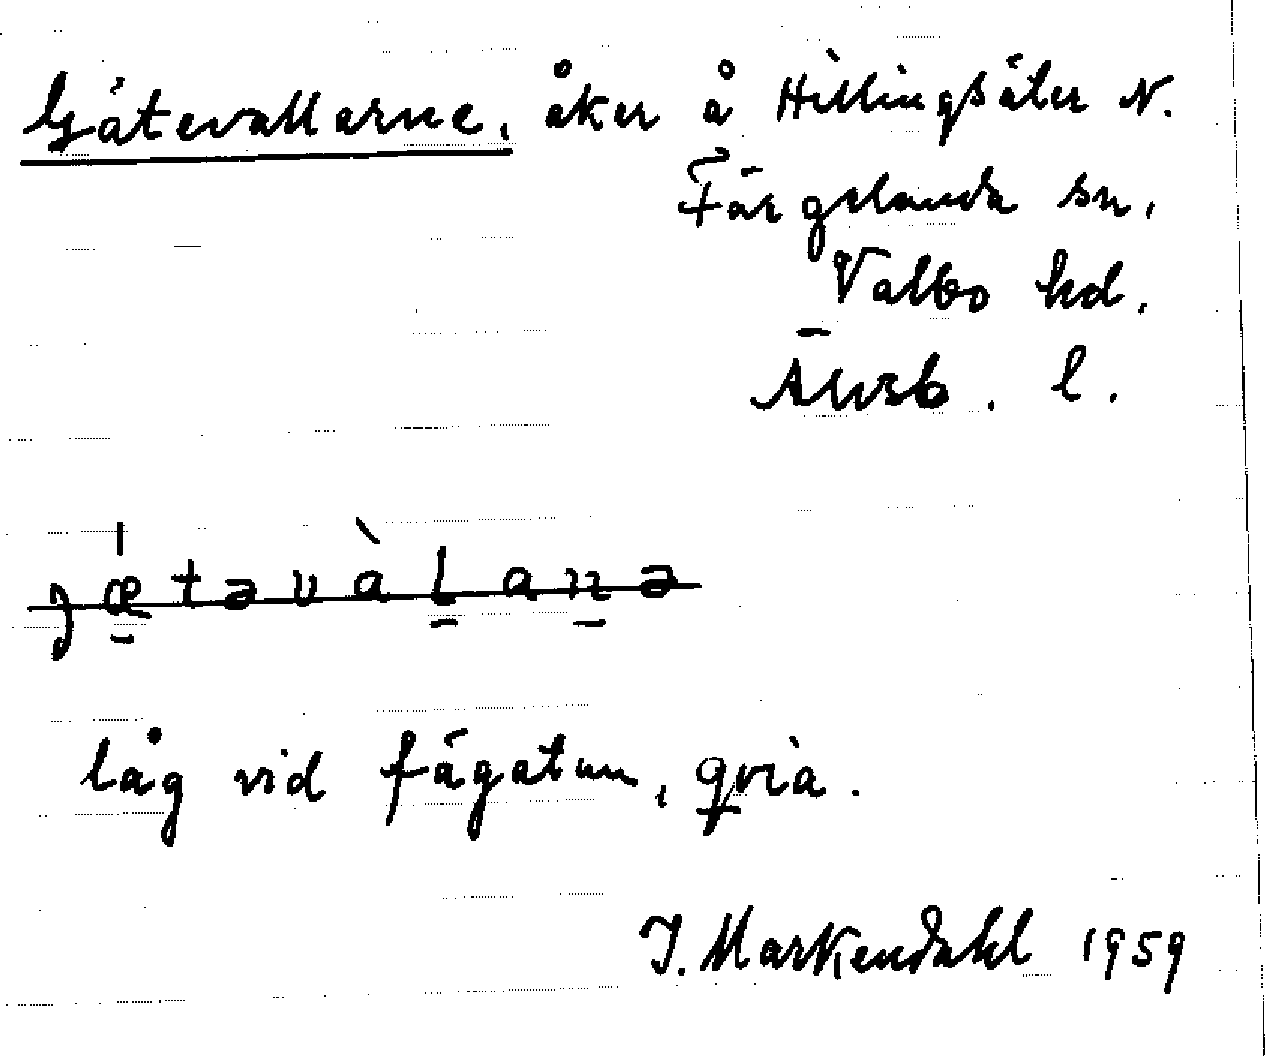 Gätevallarne, åker å Hillingsäter N.
Färgelanda sn,
Valbo hd.
Älvsb. l.
jætəvàLanə
låg vid fägatan, qvia.
J. Markendahl 1959